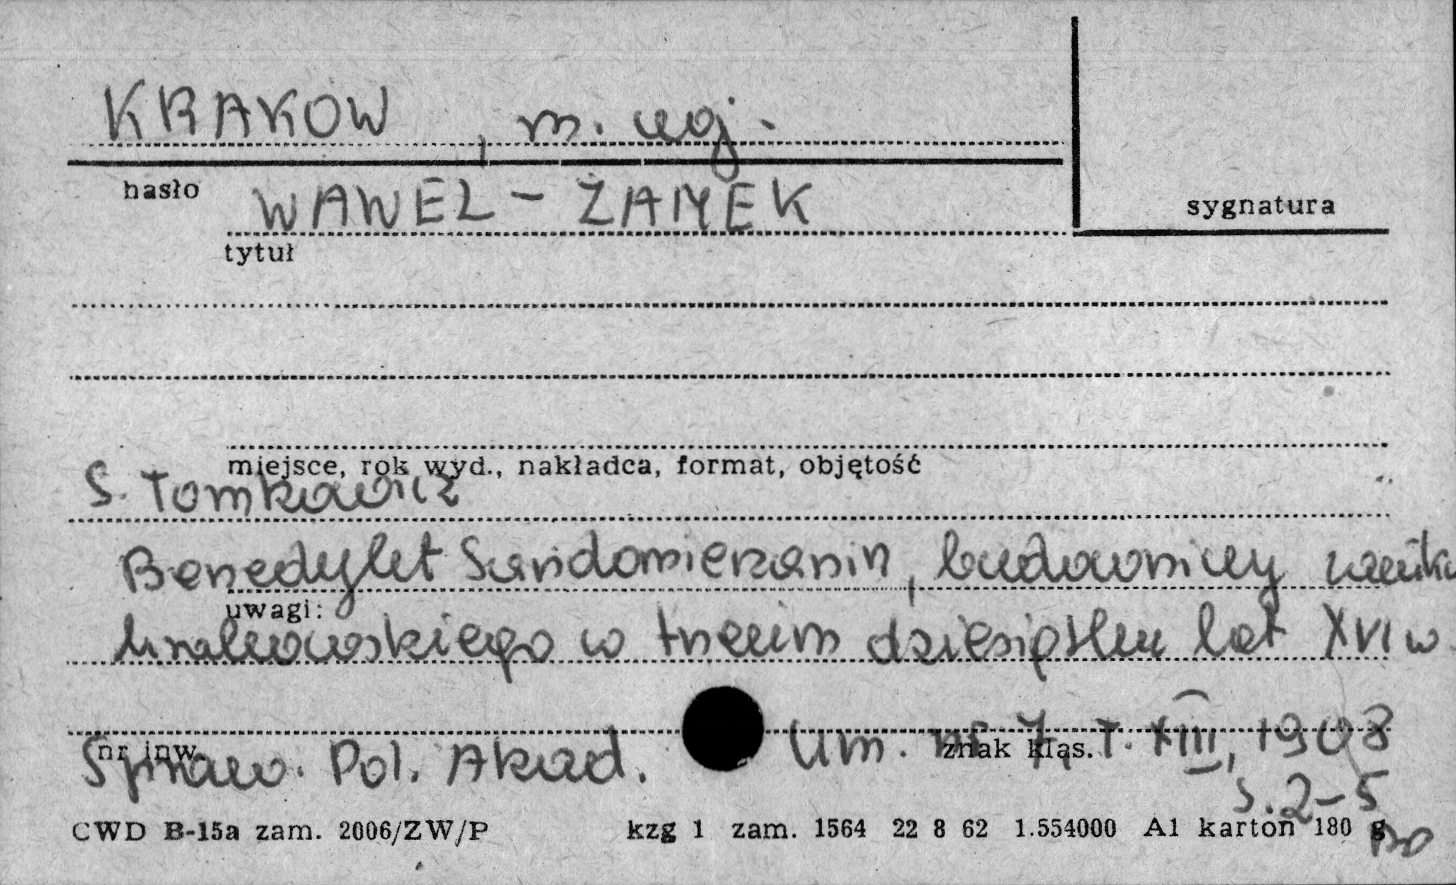 KRAKÓW, m. woj.
hasło
WAWEL - ZAMEK
sygnatura
tytuł
miejsce, rok wyd., nakładca, format, objętość
S. Tomkowicz
Benedykt Sandomierzanin, budowniczy zamku
uwagi:
krakowskiego w trzecim dziesiątku lat XVI w.
nr inw.
znak klas.
Spraw. Pol. Akad. Um. nr 7, T. XIII, 1908
s. 2-5
CWD B-15a zam. 2006/ZW/P kzg 1 zam. 1564 22 8 62 1.554000 A1 karton 180 g